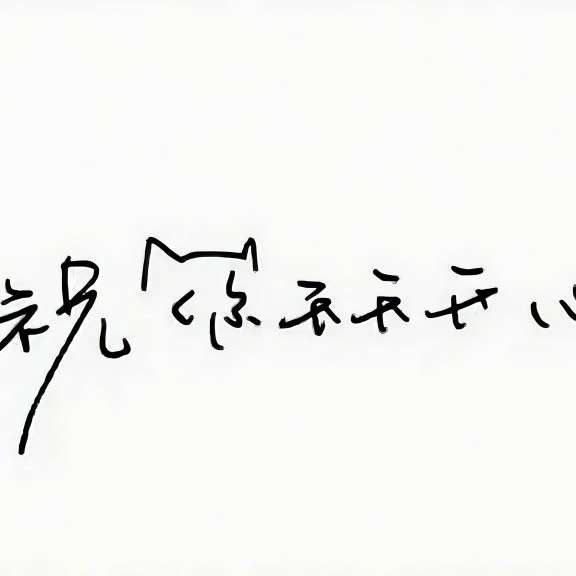 祝你天天开心